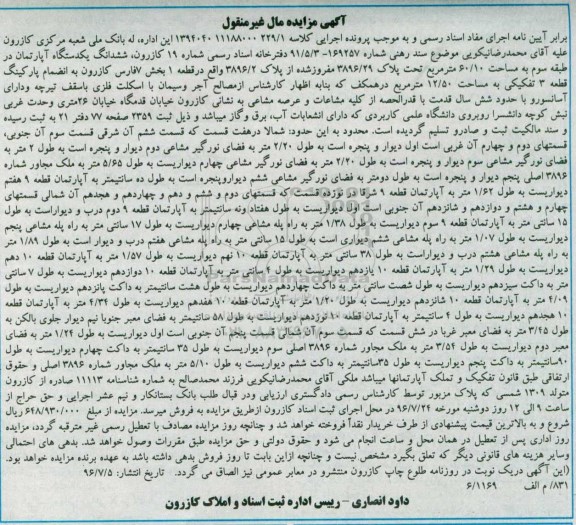 آگهی مزایده مال غیرمنقول
برابر آیین نامه اجرای مفاد اسناد رسمی و به موجب پرونده اجرایی کلاسه ۲۲۹/۱ ۱۱۱۸۸۰۰۰ ۱۳۹۴۰۴۰ این اداره، له بانک ملی شعبه مرکزی کازرون
علیه آقای محمدرضانیکویی موضوع سند رهنی شماره ۱۶۹۲۵۷-۹۱/۵/۳ دفترخانه اسناد رسمی شماره ۱۹ کازرون، ششدانگ یکدستگاه آپارتمان در
طبقه سوم به مساحت ۶۰/۱۰ مترمربع تحت پلاک ۳۸۹۶/۲۹ مفروزشده از پلاک ۳۸۹۶/۲ واقع درقطعه ۱ بخش ۷فارس کازرون به انضمام پارکینگ
قطعه ۳ تفکیکی به مساحت ۱۲/۵۰ مترمربع درهمکف که بنابه اظهار کارشناس ازمصالح آجر وسیمان با اسکلت فلزی باسقف تیرچه ودارای
آسانسورو با حدود شش سال قدمت با قدرالحصه از کلیه مشاعات و عرصه مشاعی به نشانی کازرون خیابان قدمگاه خیابان ۲۶متری وحدت غربی
نبش کوچه دانشسرا روبروی دانشگاه علمی کاربردی که دارای انشعابات آب، برق وگاز میباشد و ذیل ثبت ۲۳۵۹ صفحه ۷۷ دفتر ۲۱ به ثبت رسیده
و سند مالکیت ثبت و صادرو تسلیم گردیده است. محدود به این حدود: شمالا درهفت قسمت که قسمت ششم آن شرقی قسمت سوم آن جنوبی،
قسمتهای دوم و چهارم آن غربی است اول دیوار و پنجره است به طول ۲/۲۰ متر به فضای نورگیر مشاعی دوم دیوار و پنجره است به طول ۲ متر به
فضای نورگیر مشاعی سوم دیوار و پنجره است به طول ۲/۲۰ متر به فضای نورگیر مشاعی چهارم دیواریست به طول ۵/۶۵ متر به ملک مجاور شماره
۳۸۹۶ اصلی پنجم دیوار و پنجره است به طول دومتر به فضای نورگیر مشاعی ششم دیواروپنجره است به طول ده سانتیمتر به آپارتمان قطعه ۹ هفتم
دیواریست به طول ۱/۶۲ متر به آپارتمان قطعه ۹ شرقا در نوزده قسمت که قسمتهای دوم و ششم و دهم و چهاردهم و هجدهم آن شمالی قسمتهای
چهارم و هشتم و دوازدهم و شانزدهم آن جنوبی است اول دیواریست به طول هفتاد ونه سانتیمتر به آپارتمان قطعه ۹ دوم درب و دیواراست به طول
۱۵ سانتی متر به آپارتمان قطعه ۹ سوم دیواریست به طول ۱/۳۸ متر به راه پله مشاعی چهارم دیواریست به طول ۱۷ سانتی متر به راه پله مشاعی پنجم
دیواریست به طول ۱/۰۷ متر به راه پله مشاعی ششم دیواری است به طول ۱۵ سانتی متر به راه پله مشاعی هفتم درب و دیوار است به طول ۱/۸۹ متر
به راه پله مشاعی هشتم درب و دیواراست به طول ۳۸ سانتی متر به آپارتمان قطعه ۱۰ نهم دیواریست به طول ۱/۵۷ متر به آپارتمان قطعه ۱۰ دهم
دیواریست به طول ۱/۲۹ متر به آپارتمان قطعه ۱۰ یازدهم دیواریست به طول ۴ سانتی متر به آپارتمان قطعه ۱۰ دوازدهم دیواریست به طول ۷ سانتی
متر به داکت سیزدهم دیواریست به طول شصت سانتی متر به داکت چهاردهم دیواریست به طول هشت سانتیمتر به داکت پانزدهم دیواریست به طول
۴/۰۹ متر به آپارتمان قطعه ۱۰ شانزدهم دیواریست به طول ۱/۲۰ متر به آپارتمان قطعه ۱۰ هفدهم دیواریست به طول ۴/۳۴ متر به آپارتمان قطعه
۱۰ هجدهم دیواریست به طول ۴ سانتیمتر به آپارتمان قطعه ۱۰ نوزدهم دیواریست به طول ۵۸ سانتیمتر به فضای معبر جنوبا نیم دیوار جلوی بالکن به
طول ۳/۴۵ متر به فضای معبر غربا در شش قسمت که قسمت سوم آن شمالی قسمت پنجم آن جنوبی است اول دیواریست به طول ۱/۲۴ متر به فضای
معبر دوم دیواریست به طول ۳/۵۴ متر به ملک مجاور شماره ۳۸۹۶ اصلی سوم دیواریست به طول ۳۵ سانتیمتر به داکت چهارم دیواریست به طول
۹۰سانتیمتر به داکت پنجم دیواریست به طول ۳۵سانتیمتر به داکت ششم دیواریست به طول ۵/۱۰ متر به ملک مجاور شماره ۳۸۹۶ اصلی و حقوق
ارتفاقی طبق قانون تفکیک و تملک آپارتمانها میباشد ملکی آقای محمدرضانیکویی فرزند محمدصالح به شماره شناسنامه ۱۱۱۱۳ صادره از کازرون
متولد ۱۳۰۹ شمسی که پلاک مزبور توسط کارشناس رسمی دادگستری ارزیابی ودر قبال طلب بانک بستانکار و نیم عشر اجرایی و حق حراج از
ساعت ۹ الی ۱۲ روز دوشنبه مورخه ۹۶/۷/۲۴ در محل اجرای ثبت اسناد کازرون ازطریق مزایده به فروش میرسد. مزایده از مبلغ ۶۴۸/۹۳۰/۰۰۰ ریال
شروع و به بالاترین قیمت پیشنهادی از طرف خریدار نقداً فروخته خواهد شد و چنانچه روز مزایده مصادف با تعطیل رسمی غیر مترقبه گردد، مزایده
روز اداری پس از تعطیل در همان محل و ساعت انجام می شود و حقوق دولتی و حق مزایده طبق مقررات وصول خواهد شد. بدهی های احتمالی
وسایر هزینه های قانونی دیگر که تعلق بگیرد مشخص نیست و چنانچه ازاین بابت تا روز فروش بدهی داشته باشد به عهده برنده مزایده خواهد بود.
(این آگهی دریک نوبت در روزنامه طلوع چاپ کازرون منتشرو در معابر عمومی نیز الصاق می گردد. تاریخ انتشار: ۹۶/۷/۵
۸۳۱/ م الف ۶/۱۱۶۹
داود انصاری – رییس اداره ثبت اسناد و املاک کازرون